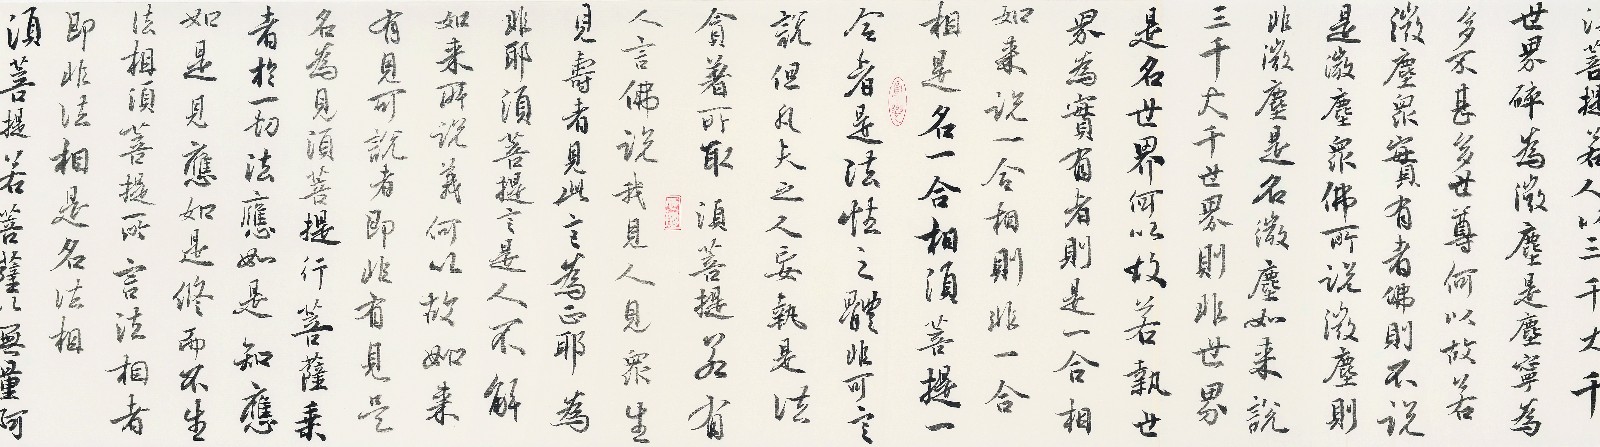 須菩提若人以三千大千
世界碎為微塵是塵寧為
多不甚多世尊何以故若
微塵眾實有者佛則不说
是微塵眾佛所说微塵則
非微塵是名微塵如来説
三千大千世界則非世界
是名世界何以故若執世
界為實有者則是一合相
如来说一合相則非一合
相是名一合相須菩提一
合者是法性之體非可言
説但凡夫之人妄執是法
貪著所取須菩提若有
人言佛说我見人見眾生
見壽者見此言為正耶為
非耶須菩提言是人不解
如来所说義何以故如来
有見可説者即非有見是
名為見須菩提行菩薩乘
者於一切法應如是知應
如是見應如是修而不生
法相須菩提所言法相者
即非法相是名法相
須菩提若菩薩以無量阿